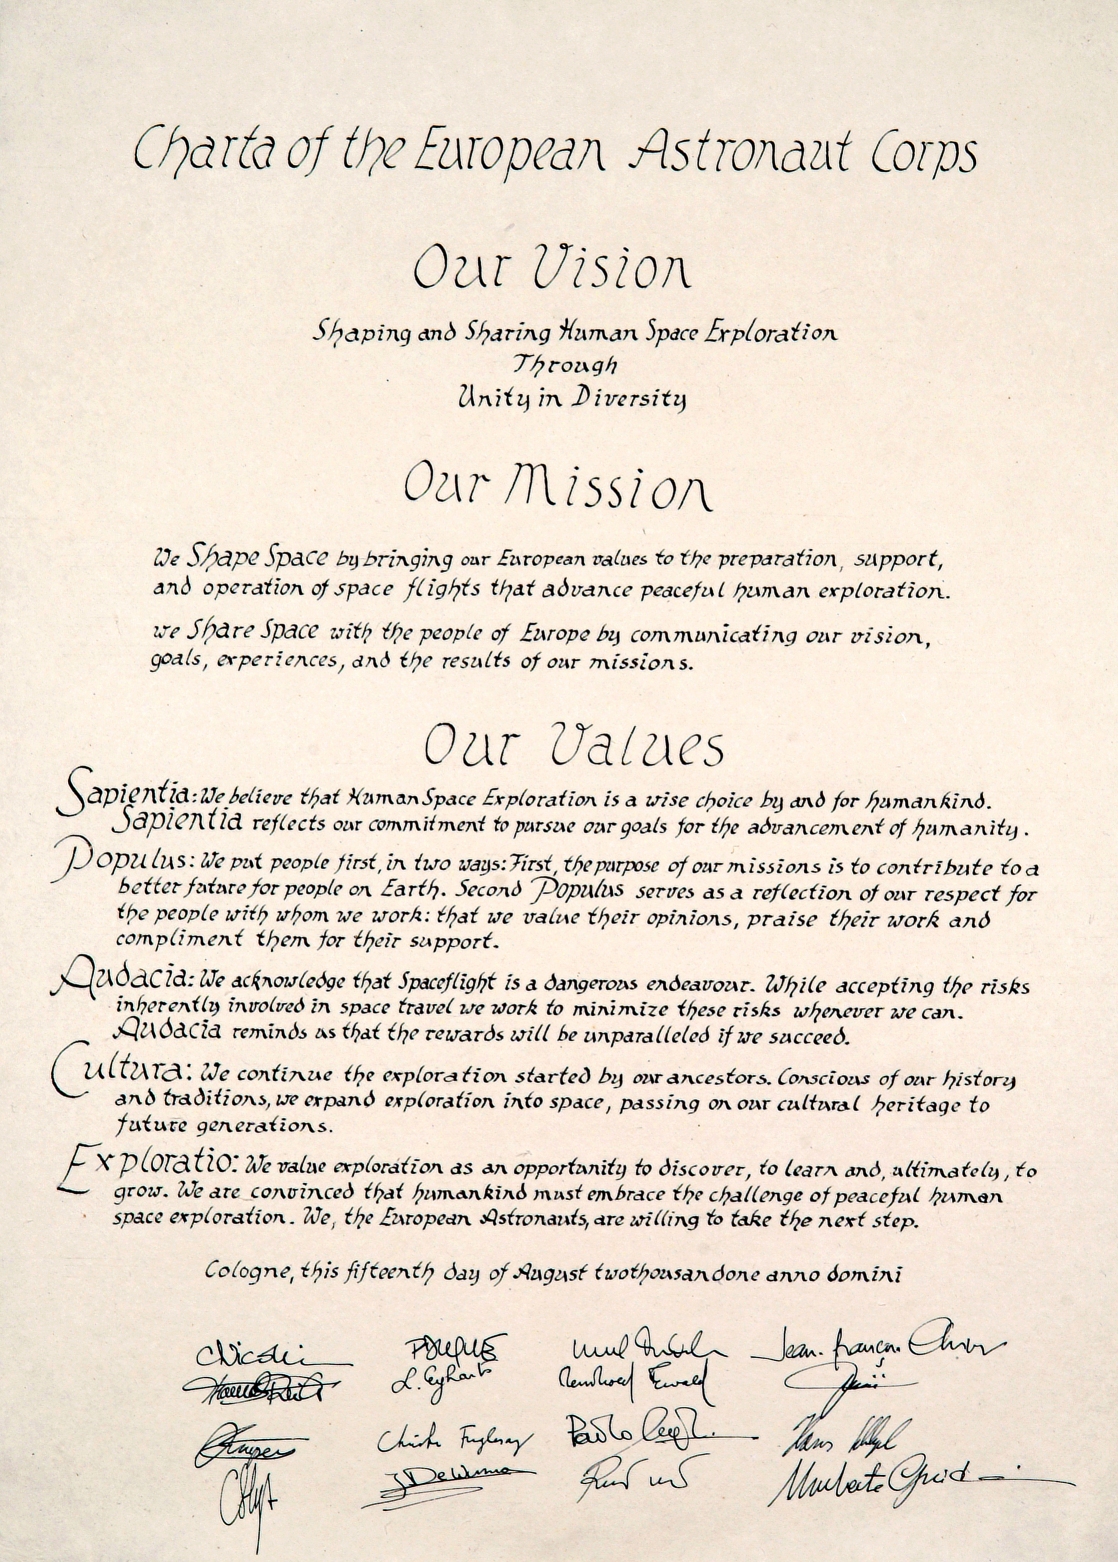 Charta of the European Astronaut Corps
Our Vision
Shaping and Sharing Human Space Exploration
Through
Unity in Diversity
Our Mission
We Shape Space by bringing our European values to the preparation, support,
and operation of space flights that advance peaceful human exploration.
we Share Space with the people of Europe by communicating our vision,
goals, experiences, and the results of our missions.
Our Values
Sapientia: We believe that Human Space Exploration is a wise choice by and for humankind.
Sapientia reflects our commitment to pursue our goals for the advancement of humanity.
Populus: We put people first, in two ways: First, the purpose of our missions is to contribute to a
better future for people on Earth. Second Populus serves as a reflection of our respect for
the people with whom we work: that we value their opinions, praise their work and
compliment them for their support.
Audacia: We acknowledge that Spaceflight is a dangerous endeavour. While accepting the risks
inherently involved in space travel we work to minimize these risks whenever we can.
Audacia reminds us that the rewards will be unparalleled if we succeed.
Cultura: We continue the exploration started by our ancestors. Conscious of our history
and traditions, we expand exploration into space, passing on our cultural heritage to
future generations.
Exploratio: We value exploration as an opportunity to discover, to learn and, ultimately, to
grow. We are convinced that humankind must embrace the challenge of peaceful human
space exploration. We, the European Astronauts, are willing to take the next step.
Cologne, this fifteenth day of August twothousandone anno domini
Jean-François
L. Eyharts Reinhold Ewald
Christer Fuglesang Paolo Hans
Umberto